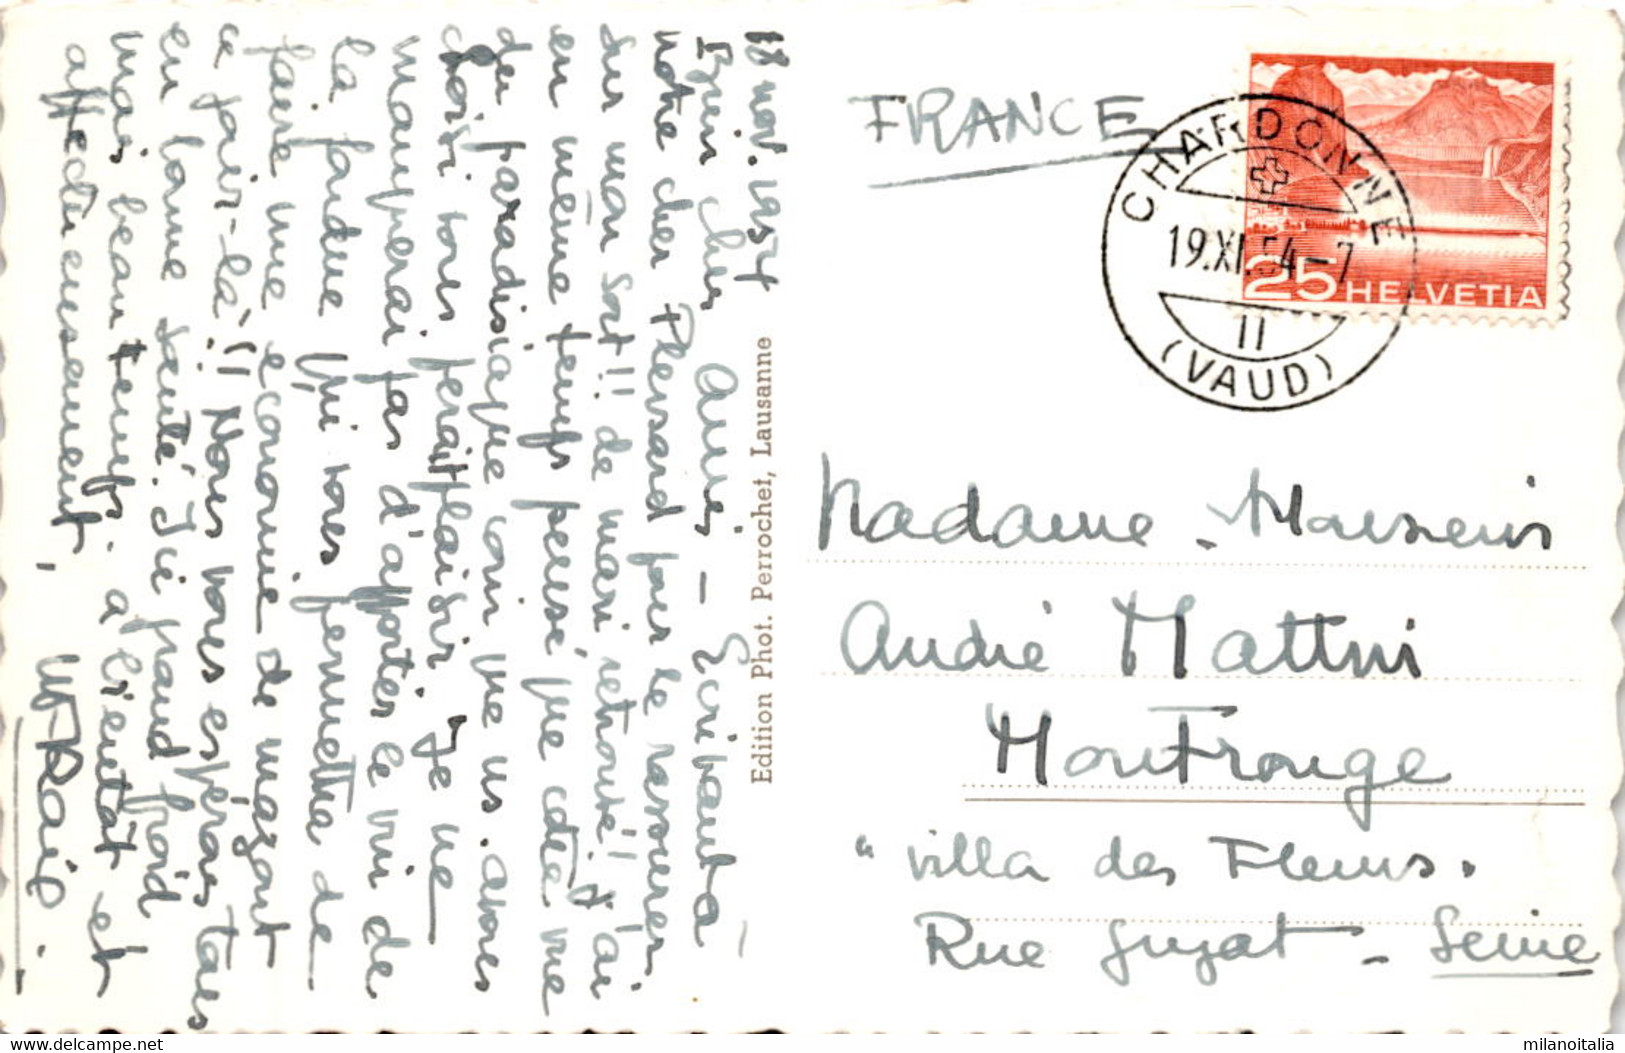 18 nov. 1954
Bien chers Amis - Écrivant à
notre cher Plessard pour le rassurer
sur mon sort!! de mari retrouvé! j'ai
en même temps pensé que cette vue
du paradisiaque coin que ns. avons
choisi vous ferait plaisir. Je ne
manquerai pas d'apporter le vin de
la fondue qui vous permettra de
faire une économie de
ce jour-là!! Nous vous espérons tous
en bonne santé. Ici grand froid
mais beau temps. à bientôt et
affectueusement,
Edition Phot. Perrochet, Lausanne
FRANCE
CHARDONNE
19.XI.54-7
11
(VAUD)
25 HELVETIA
Madame. Monsieur
André Mattini
Montrouge
"villa des Fleurs.
Rue Gugat - Seine
www.delcampe.net
milanoitalia